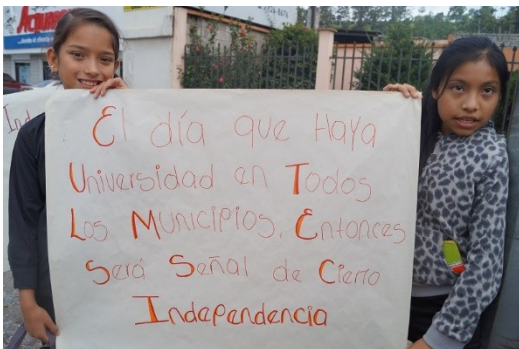 El día que Haya
Universidad en Todos
Los Municipios, Entonces
Será Señal de Cierto
Independencia